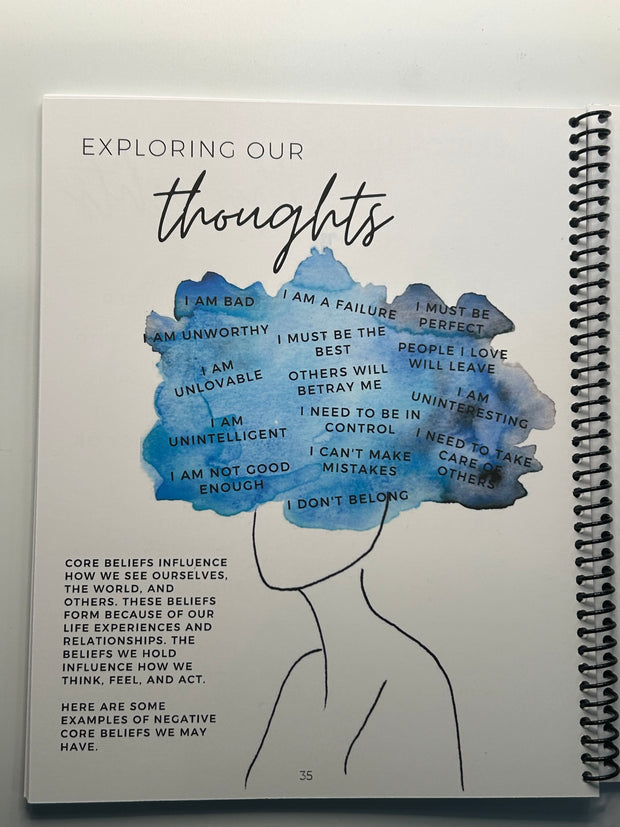 EXPLORING OUR
thoughts
I AM BAD
I AM A FAILURE
I MUST BE
PERFECT
I AM UNWORTHY
I MUST BE THE
BEST
PEOPLE I LOVE
WILL LEAVE
I AM
UNLOVABLE
OTHERS WILL
BETRAY ME
I AM
UNINTERESTING
I AM
UNINTELLIGENT
I NEED TO BE IN
CONTROL
I NEED TO TAKE
CARE OF
OTHERS
I AM NOT GOOD
ENOUGH
I CAN'T MAKE
MISTAKES
I DON'T BELONG
CORE BELIEFS INFLUENCE
HOW WE SEE OURSELVES,
THE WORLD, AND
OTHERS. THESE BELIEFS
FORM BECAUSE OF OUR
LIFE EXPERIENCES AND
RELATIONSHIPS. THE
BELIEFS WE HOLD
INFLUENCE HOW WE
THINK, FEEL, AND ACT.
HERE ARE SOME
EXAMPLES OF NEGATIVE
CORE BELIEFS WE MAY
HAVE.
35